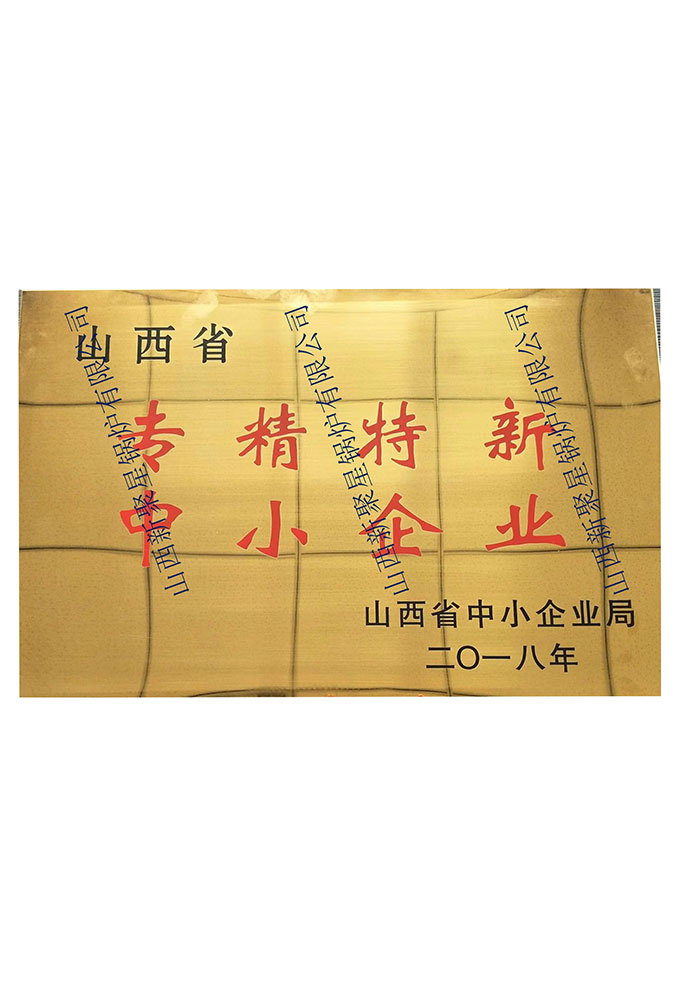 山西省
专精特新
中小企业
山西省中小企业局
二〇一八年
山西新聚星锅炉有限公司
山西新聚星锅炉有限公司
山西新聚星锅炉有限公司